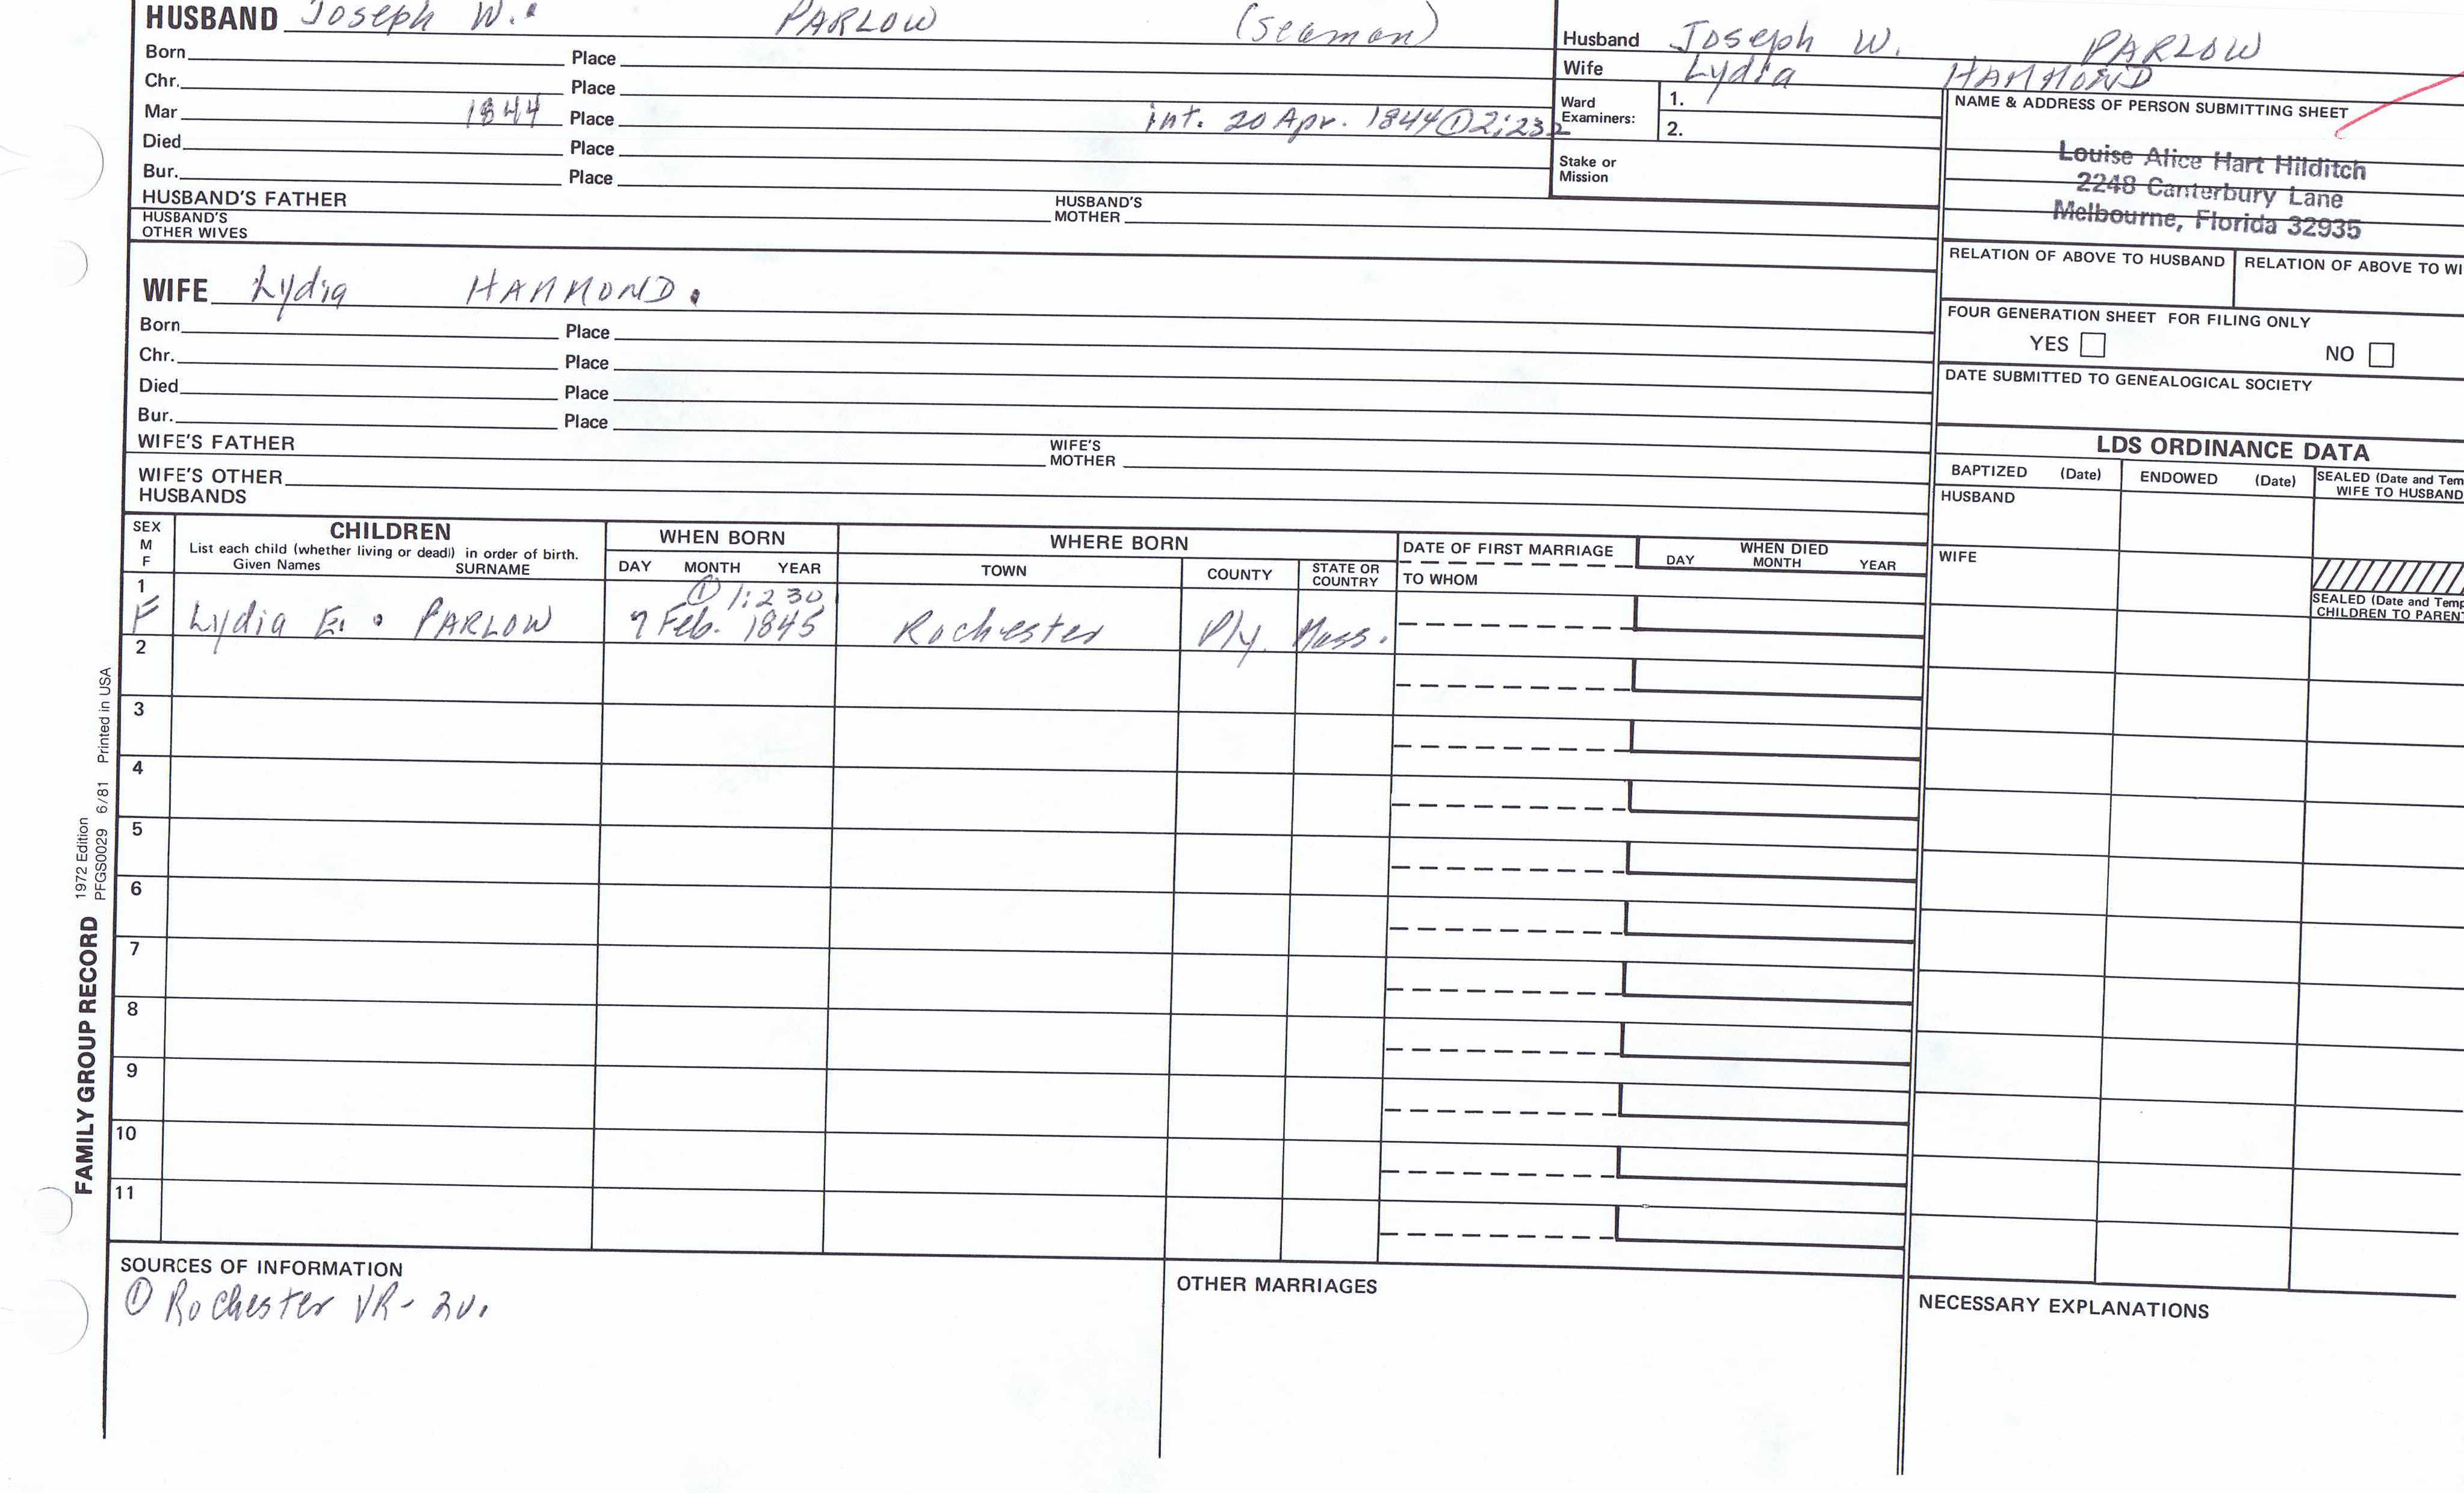 HUSBAND Joseph W. PARLOW (seaman)
Born Place
Chr. Place
Mar 1844 Place int. 20 Apr. 1844 ① 2:232
Died Place
Bur. Place
HUSBAND'S FATHER HUSBAND'S MOTHER
HUSBAND'S OTHER WIVES
Husband Joseph W. PARLOW
Wife Lydia HAMMOND
Ward Examiners: 1.
2.
Stake or Mission
NAME & ADDRESS OF PERSON SUBMITTING SHEET
Louise Alice Hart Hilditch
2248 Canterbury Lane
Melbourne, Florida 32935
RELATION OF ABOVE TO HUSBAND RELATION OF ABOVE TO WI
FOUR GENERATION SHEET FOR FILING ONLY
YES NO
DATE SUBMITTED TO GENEALOGICAL SOCIETY
WIFE Lydia HAMMOND.
Born Place
Chr. Place
Died Place
Bur. Place
WIFE'S FATHER WIFE'S MOTHER
WIFE'S OTHER HUSBANDS
LDS ORDINANCE DATA
BAPTIZED (Date) ENDOWED (Date) SEALED (Date and Tem
WIFE TO HUSBAND
HUSBAND
WIFE
SEALED (Date and Temp
CHILDREN TO PARENT
SEX M F
CHILDREN
List each child (whether living or dead) in order of birth.
Given Names SURNAME
WHEN BORN
DAY MONTH YEAR
WHERE BORN
TOWN COUNTY STATE OR COUNTRY
DATE OF FIRST MARRIAGE
TO WHOM
WHEN DIED
DAY MONTH YEAR
1 ① 1:230
F Lydia E. PARLOW 7 Feb. 1845 Rochester Ply. Mass.
2
3
4
5
6
7
8
9
10
11
SOURCES OF INFORMATION
① Rochester VR- 2v.
OTHER MARRIAGES
NECESSARY EXPLANATIONS
FAMILY GROUP RECORD 1972 Edition
PFGS0029 6/81 Printed in USA